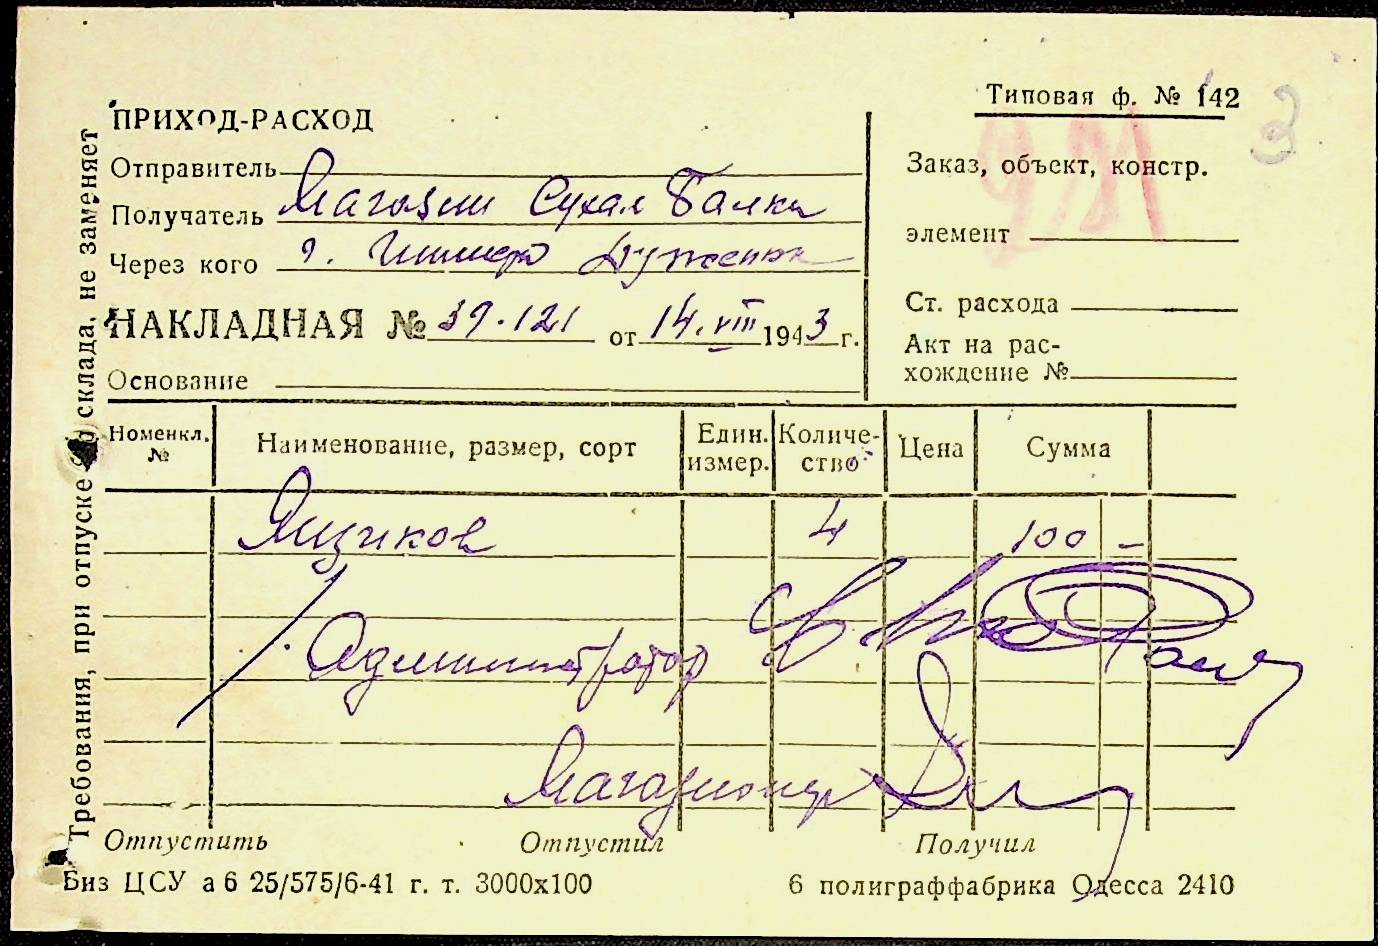 Типовая ф. № 142
3
ПРИХОД-РАСХОД
Отправитель
Получатель Магазин Сухая Балка
Через кого г.
НАКЛАДНАЯ № 39.121 от 14.VIII 1943 г.
Основание
Заказ, объект, констр.
элемент
Ст. расхода
Акт на рас-
хождение №
Требования, при отпуске со склада, не заменяет
Номенкл. № Наименование, размер, сорт Един. измер. Количе-ство Цена Сумма
Ящиков 4 100 –
Администратор
Магазионер
Отпустить Отпустил Получил
Биз ЦСУ а 6 25/575/6-41 г. т. 3000х100 6 полиграффабрика Одесса 2410